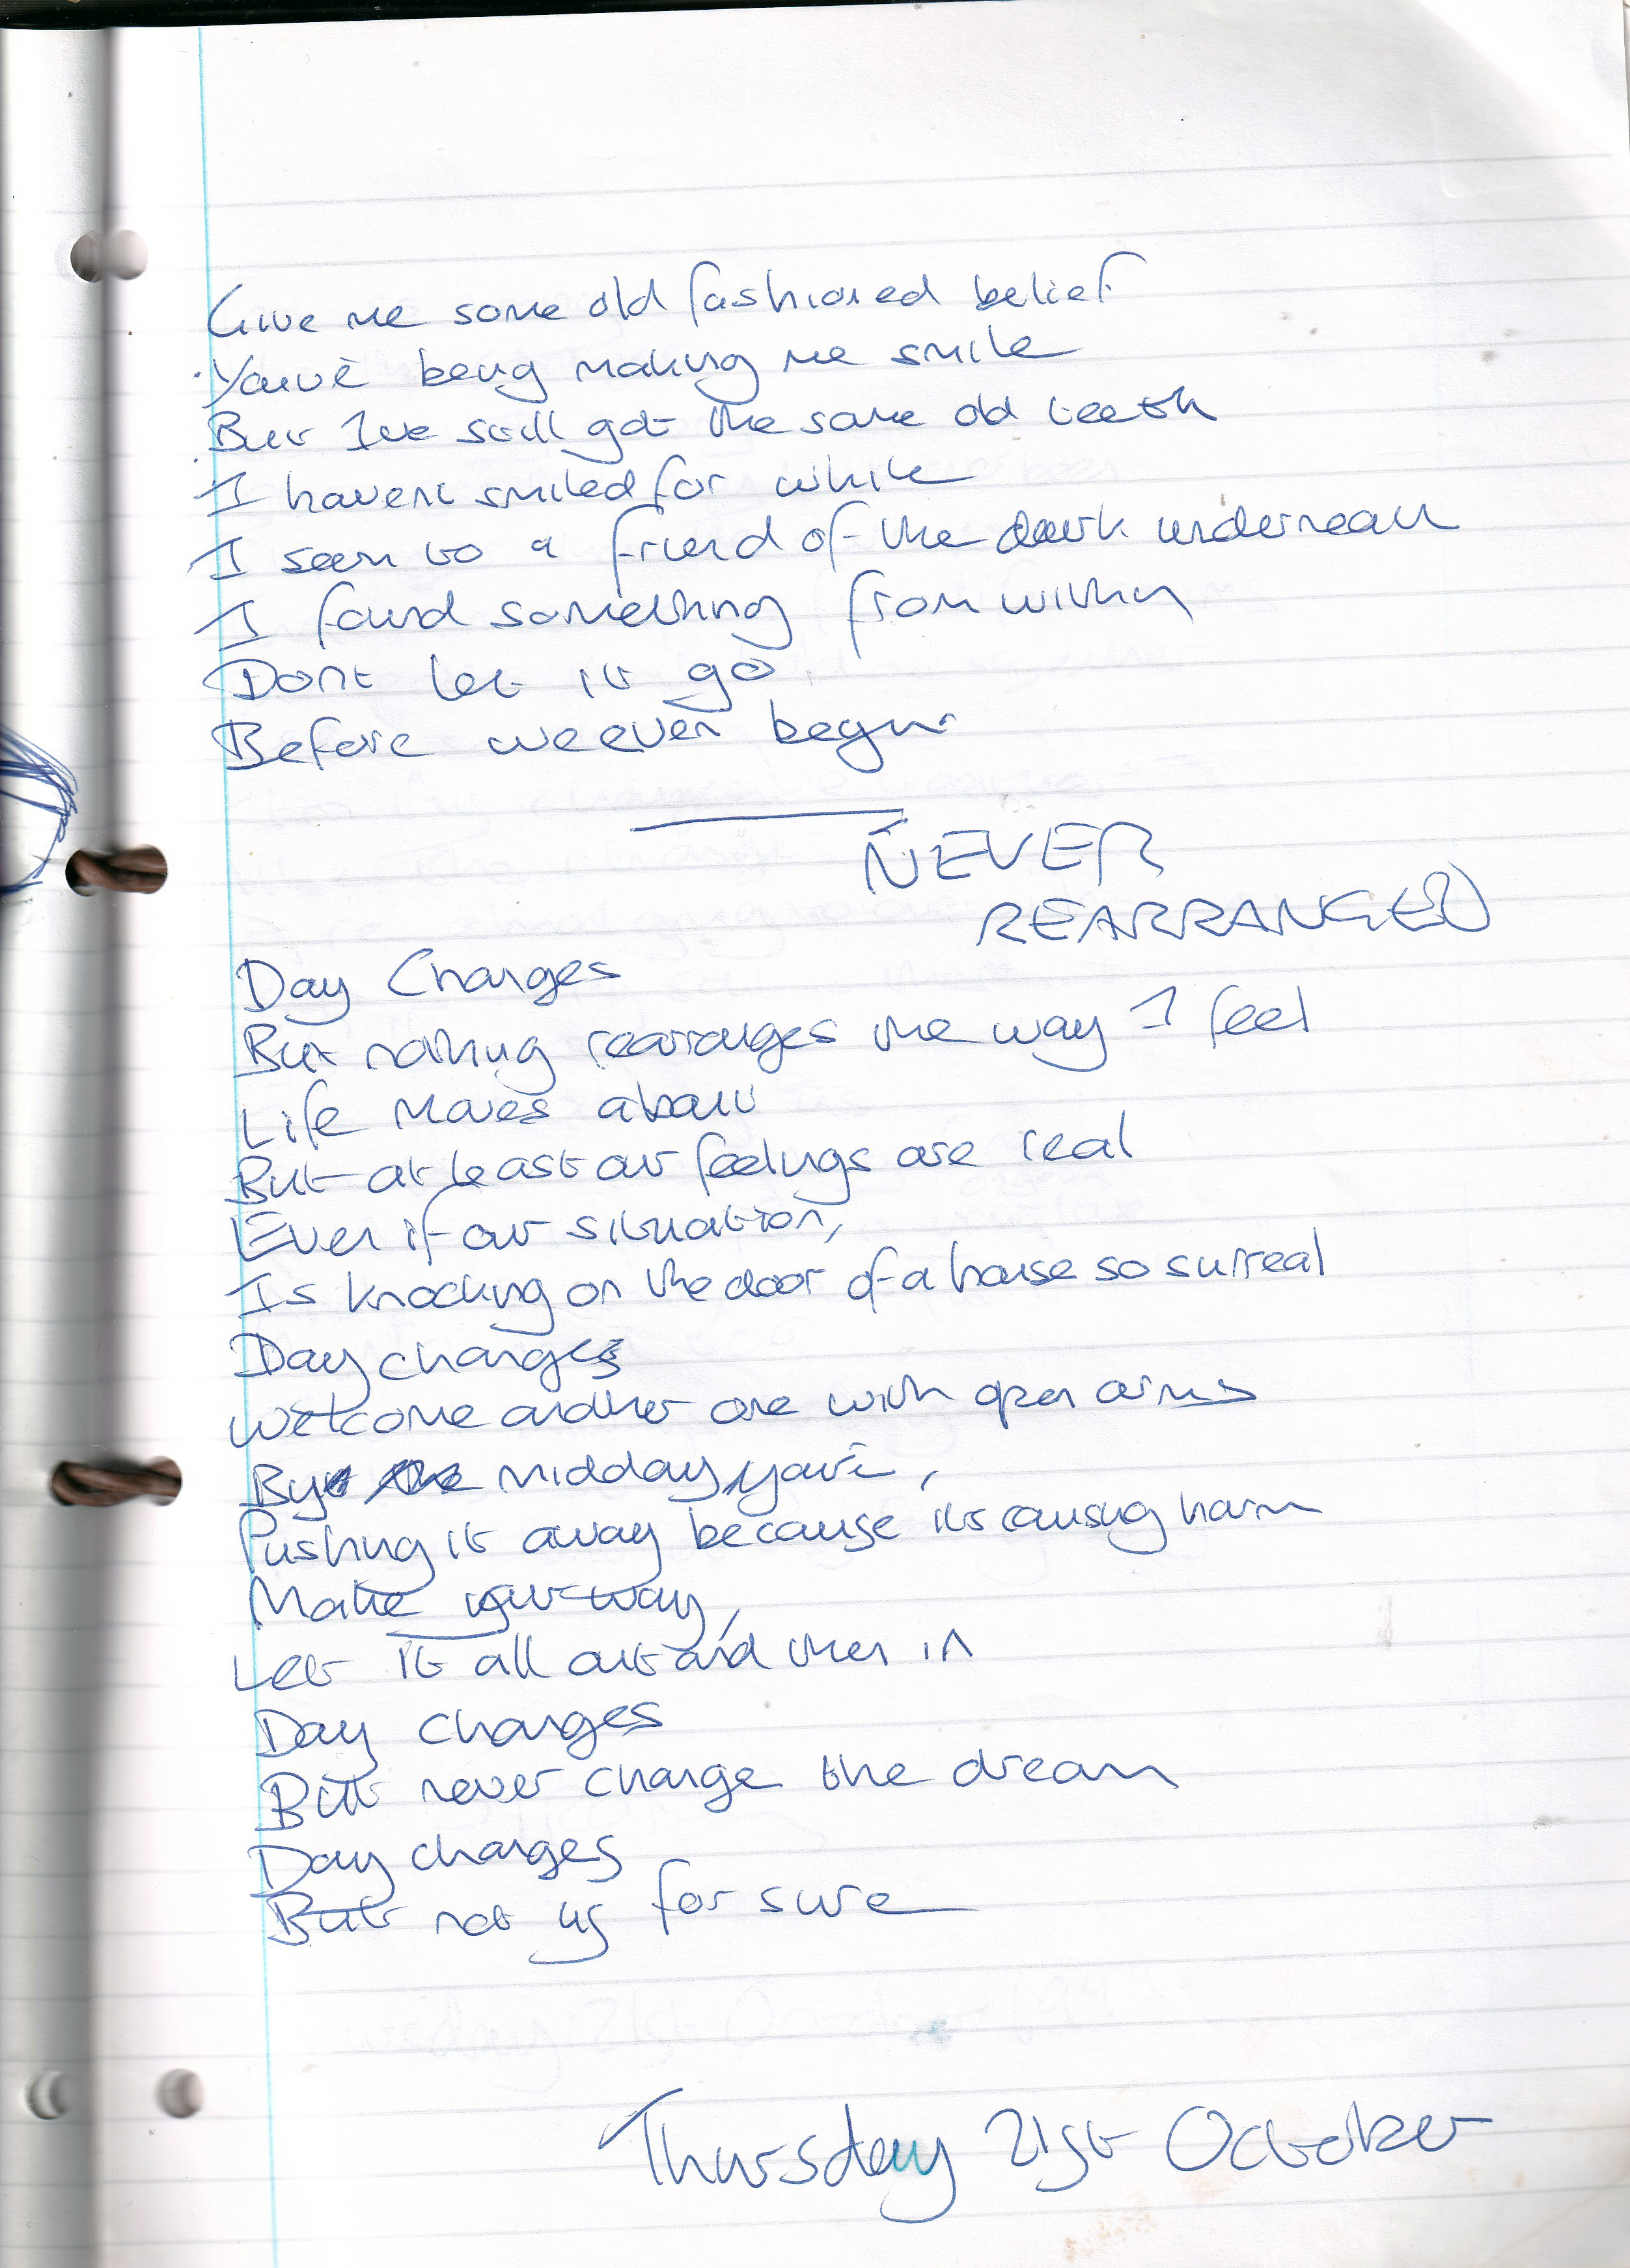 Give me some old fashioned belief
You've being making me smile
But I've still got the same old teeth
I havent smiled for while
I seem to a friend of the dark underneath
I found something from within
Dont let it go
Before we even begin
NEVER
REARRANGED
Day Changes
But nothing rearranges the way I feel
Life moves about
But at least our feelings are real
Even if our situation,
Is knocking on the door of a house so surreal
Day changes
Welcome another one with open arms
By midday you've,
Pushing it away because its causing harm
Make your way,
Let it all out and then in
Day changes
But never change the dream
Day changes
But not us for sure
Thursday 21st October